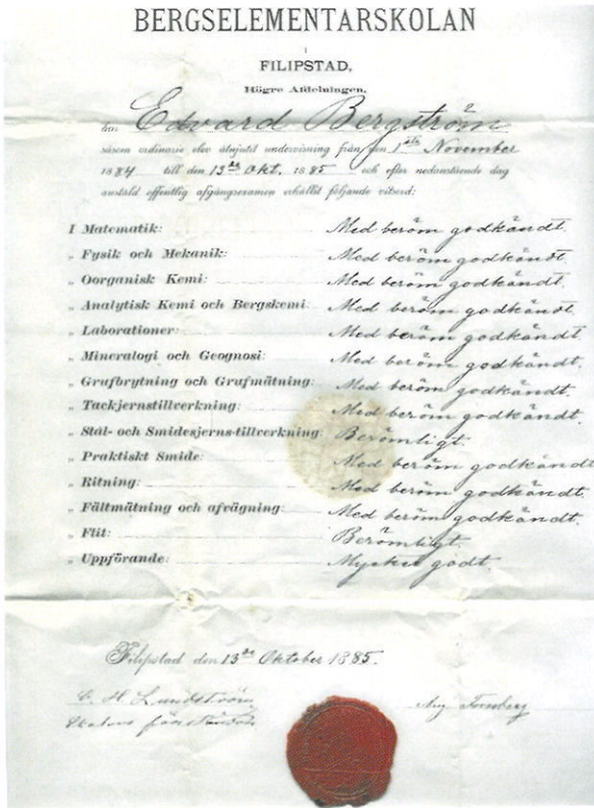 BERGSELEMENTARSKOLAN
i
FILIPSTAD,
Högre Afdelningen.
har Edvard Bergström
såsom ordinarie elev åtnjutit undervisning från den 1sta November
1884 till den 13de Okt. 1885 och efter nedanstående dag
anstäld offentlig afgångsexamen erhållit följande vitsord:
I Matematik: Med beröm godkändt.
„ Fysik och Mekanik: Med beröm godkändt.
„ Oorganisk Kemi: Med beröm godkändt.
„ Analytisk Kemi och Bergskemi: Med beröm godkändt.
„ Laborationer: Med beröm godkändt.
„ Mineralogi och Geognosi: Med beröm godkändt.
„ Grufbrytning och Grufmätning: Med beröm godkändt.
„ Tackjernstillverkning: Med beröm godkändt.
„ Stål- och Smidesjerns-tillverkning: Berömligt.
„ Praktiskt Smide: Med beröm godkändt
„ Ritning: Med beröm godkändt.
„ Fältmätning och afvägning: Med beröm godkändt.
„ Flit: Berömligt.
„ Uppförande: Mycket godt.
Filipstad den 13de Oktober 1885.
C. H. Lundström
Skolans föreståndare
Aug